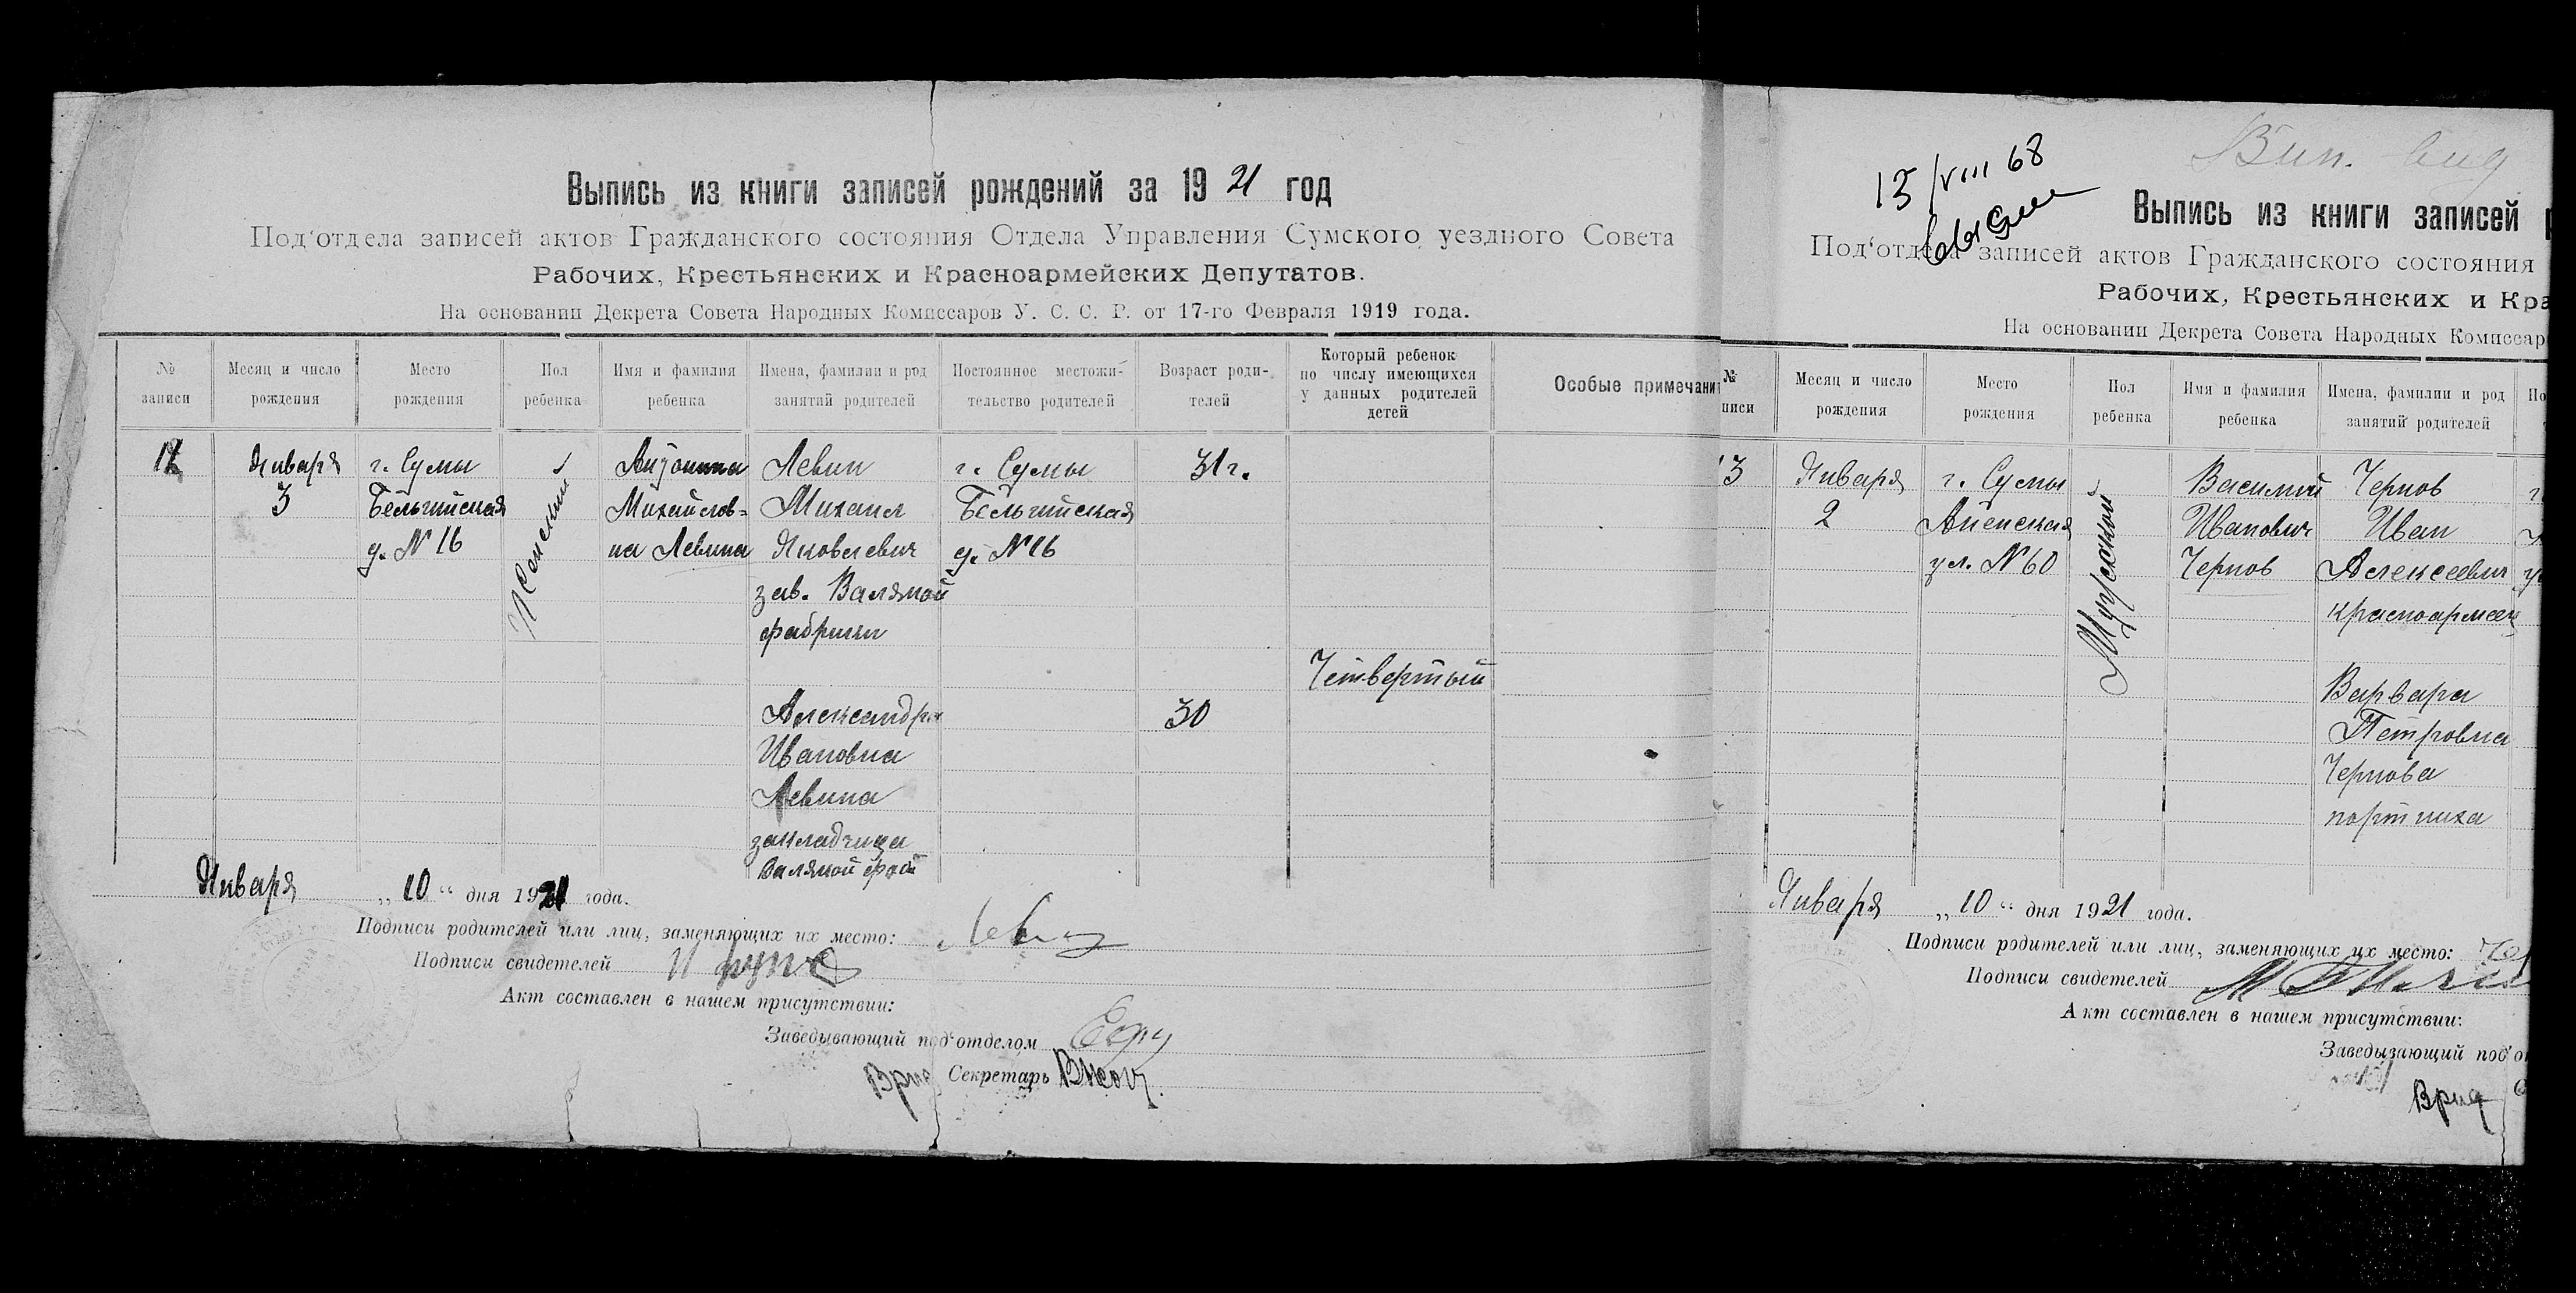 Выпись из книги записей рождений за 1921 год
Под'отдела записей актов Гражданского состояния Отдела Управления Сумского уездного Совета
Рабочих, Крестьянских и Красноармейских Депутатов.
На основании Декрета Совета Народных Комиссаров У. С. С. Р. от 17-го Февраля 1919 года.
№ записи
Месяц и число рождения
Место рождения
Пол ребенка
Имя и фамилия ребенка
Имена, фамилии и род занятий родителей
Постоянное местожительство родителей
Возраст родителей
Который ребенок по числу имеющихся у данных родителей детей
Особые примечани
12
Января
3
г. Сумы
Бельгийская
д. № 16
Женский
Антонина
Михайлов-
на Левина
Левин
Михаил
Яковлевич
зав. Валяной
фабрики
Александра
Ивановна
Левина
закладчица
Валяной фаб
г. Сумы
Бельгийская
д. № 16
31 г.
30
Четвертый
Января „10“ дня 1921 года.
Подписи родителей или лиц, заменяющих их место:
Подписи свидетелей
Акт составлен в нашем присутствии:
Заведывающий под'отделом
Врид Секретарь
13/VIII 68
Вып.
Выпись из книги записей
Под'отдела записей актов Гражданского состояния
Рабочих, Крестьянских и Кра
На основании Декрета Совета Народных Комиссар
№
писи
Месяц и число рождения
Место рождения
Пол ребенка
Имя и фамилия ребенка
Имена, фамилии и род занятий родителей
По
13
Января
2
г. Сумы
ул. № 60
Мужской
Василий
Иванович
Чернов
Чернов
Иван
Алексеевич
красноармеец
Варвара
Петровна
Чернова
портниха
Января „10“ дня 1921 года.
Подписи родителей или лиц, заменяющих их место:
Подписи свидетелей
Акт составлен в нашем присутствии:
Заведывающий под'о
Врид